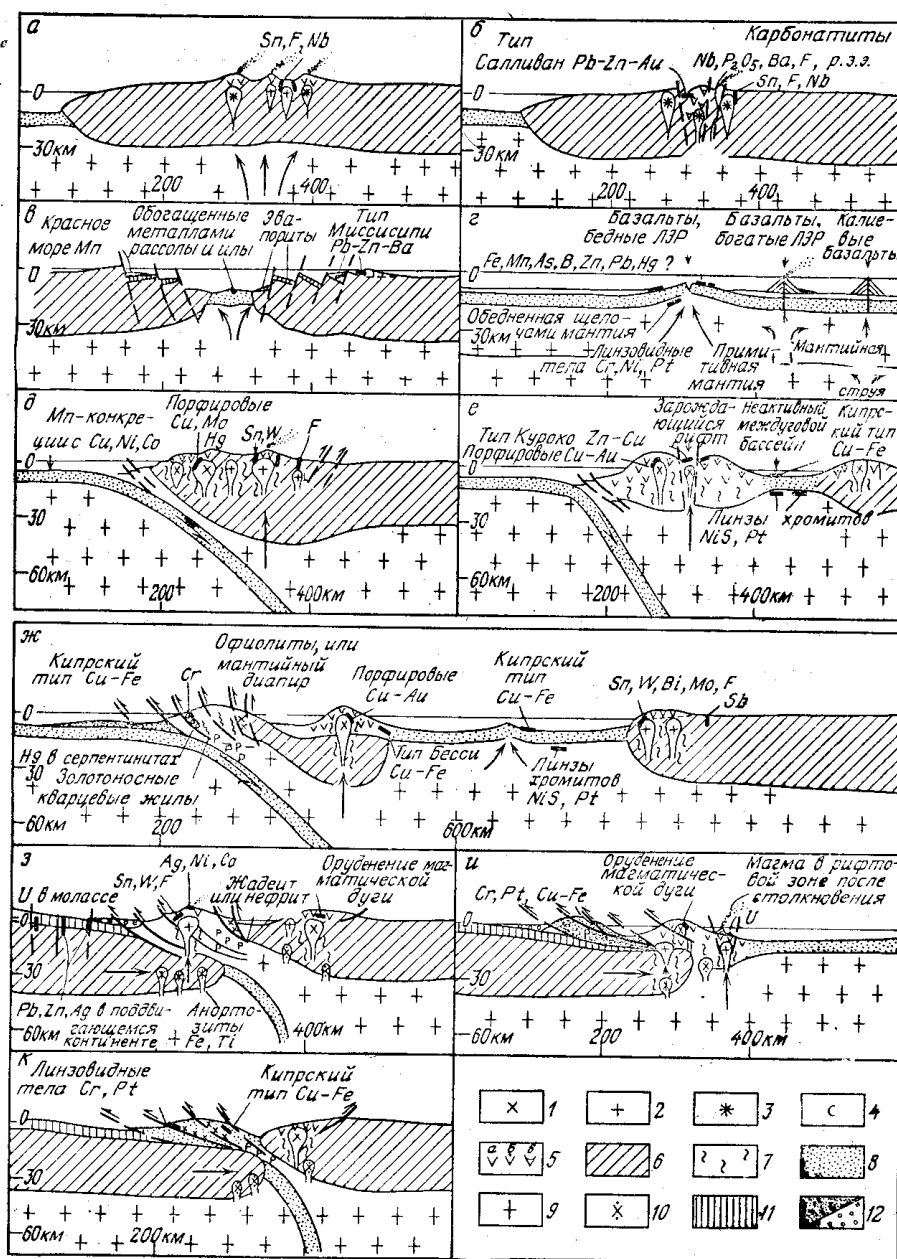 а
Sn, F, Nb
0
30км
200
400
б
Тип
Салливан Pb-Zn-Au
Карбонатиты
Nb, P2O5, Ba, F, р.з.э.
Sn, F, Nb
0
30км
200
400
в
Красное
море Mn
Обогащенные
металлами
рассолы и илы
Эва-
пориты
Тип
Миссисипи
Pb-Zn-Ba
0
30км
г
Базальты,
бедные ЛЗР
Базальты,
богатые ЛЗР
Калие-
вые
базальты
Fe, Mn, As, B, Zn, Pb, Hg ?
0
Обедненная щело-
30км
чами мантия
Линзовидные
тела Cr, Ni, Pt
Прими-
тивная
мантия
Мантийная
струя
д
Mn-конкре-
ции с Cu, Ni, Co
Порфировые
Cu, Mo
Hg
Sn, W
F
0
30
60км
200
400км
е
Тип Куроко Zn-Cu
Порфировые Cu-Au
Зарожда-
ющийся
рифт
Неактивный
междуговой
бассейн
Кипрс-
кий тип
Cu-Fe
0
30
Линзы хромитов
NiS, Pt
60км
200
400км
ж
Кипрский
тип Cu-Fe
Cr
Офиолиты, или
мантийный
диапир
Порфировые
Cu-Au
Кипрский
тип
Cu-Fe
Sn, W, Bi, Mo, F
Sb
0
Hg в серпентинитах
30
Золотоносные
кварцевые жилы
Тип Бесси
Cu-Fe
Линзы
хромитов
NiS, Pt
60км
200
600км
з
U в молассе
Sn, W, F
Ag, Ni, Co
Жадеит
или нефрит
Оруденение маг-
матической
дуги
0
30
Pb, Zn, Ag в поддви-
гающемся
континенте
60км
Анорто-
зиты
Fe, Ti
400км
и
Cr, Pt, Cu-Fe
Оруденение
магматичес-
кой дуги
Магма в рифто-
вой зоне после
столкновения
U
0
30
60км
200
400км
к
Линзовидные
тела Cr, Pt
Кипрский
тип Cu-Fe
0
30
60км
200км
1
2
3
4
5
6
7
8
9
10
11
12